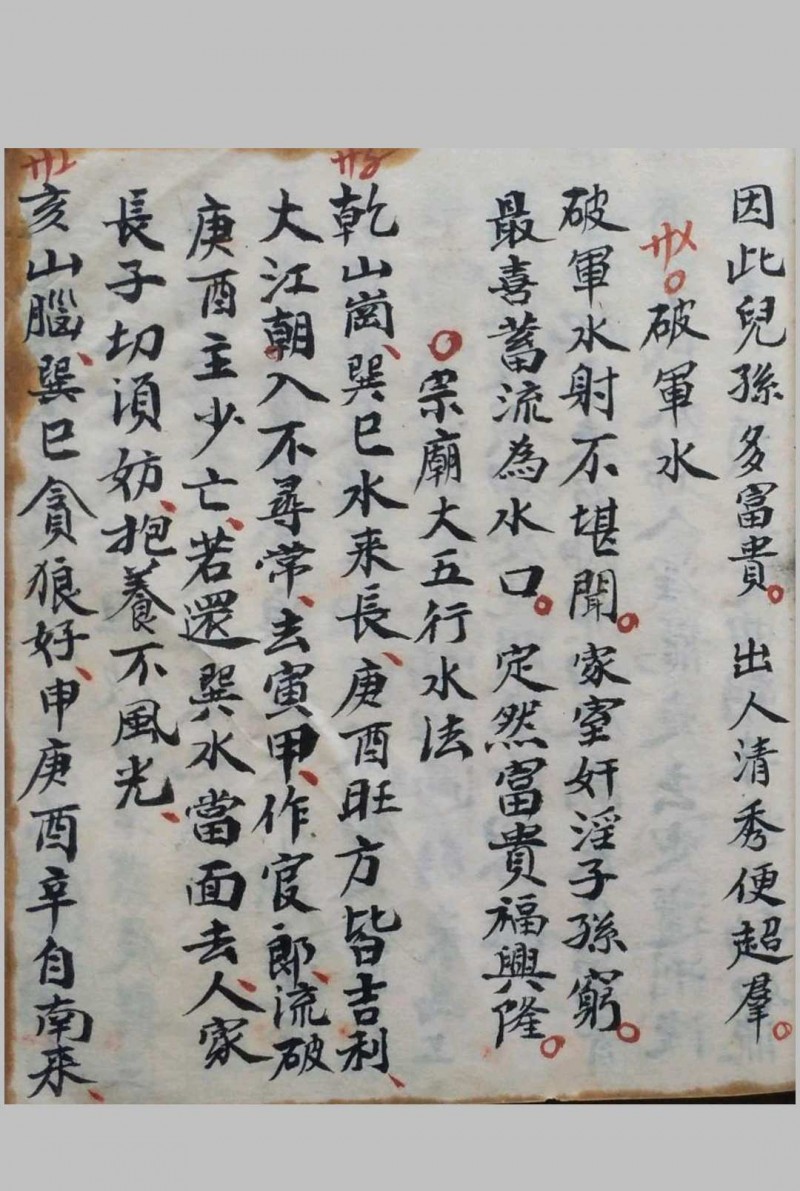 因此兒孫多富貴。出人清秀便超羣。
卄〤〇破軍水
破軍水射不堪聞。家室奸淫子孫窮。
最喜蓄流為水口。定然富貴福興隆。
〇宗廟大五行水法
乾山崗、巽巳水来長、庚酉旺方皆吉利、
大江朝入不尋常、去寅甲、作官郎、流破
庚酉主少亡、若還巽水當面去、人家
長子切須妨、抱養不風光、
亥山腦、巽巳貪狼好、申庚酉辛自南来、